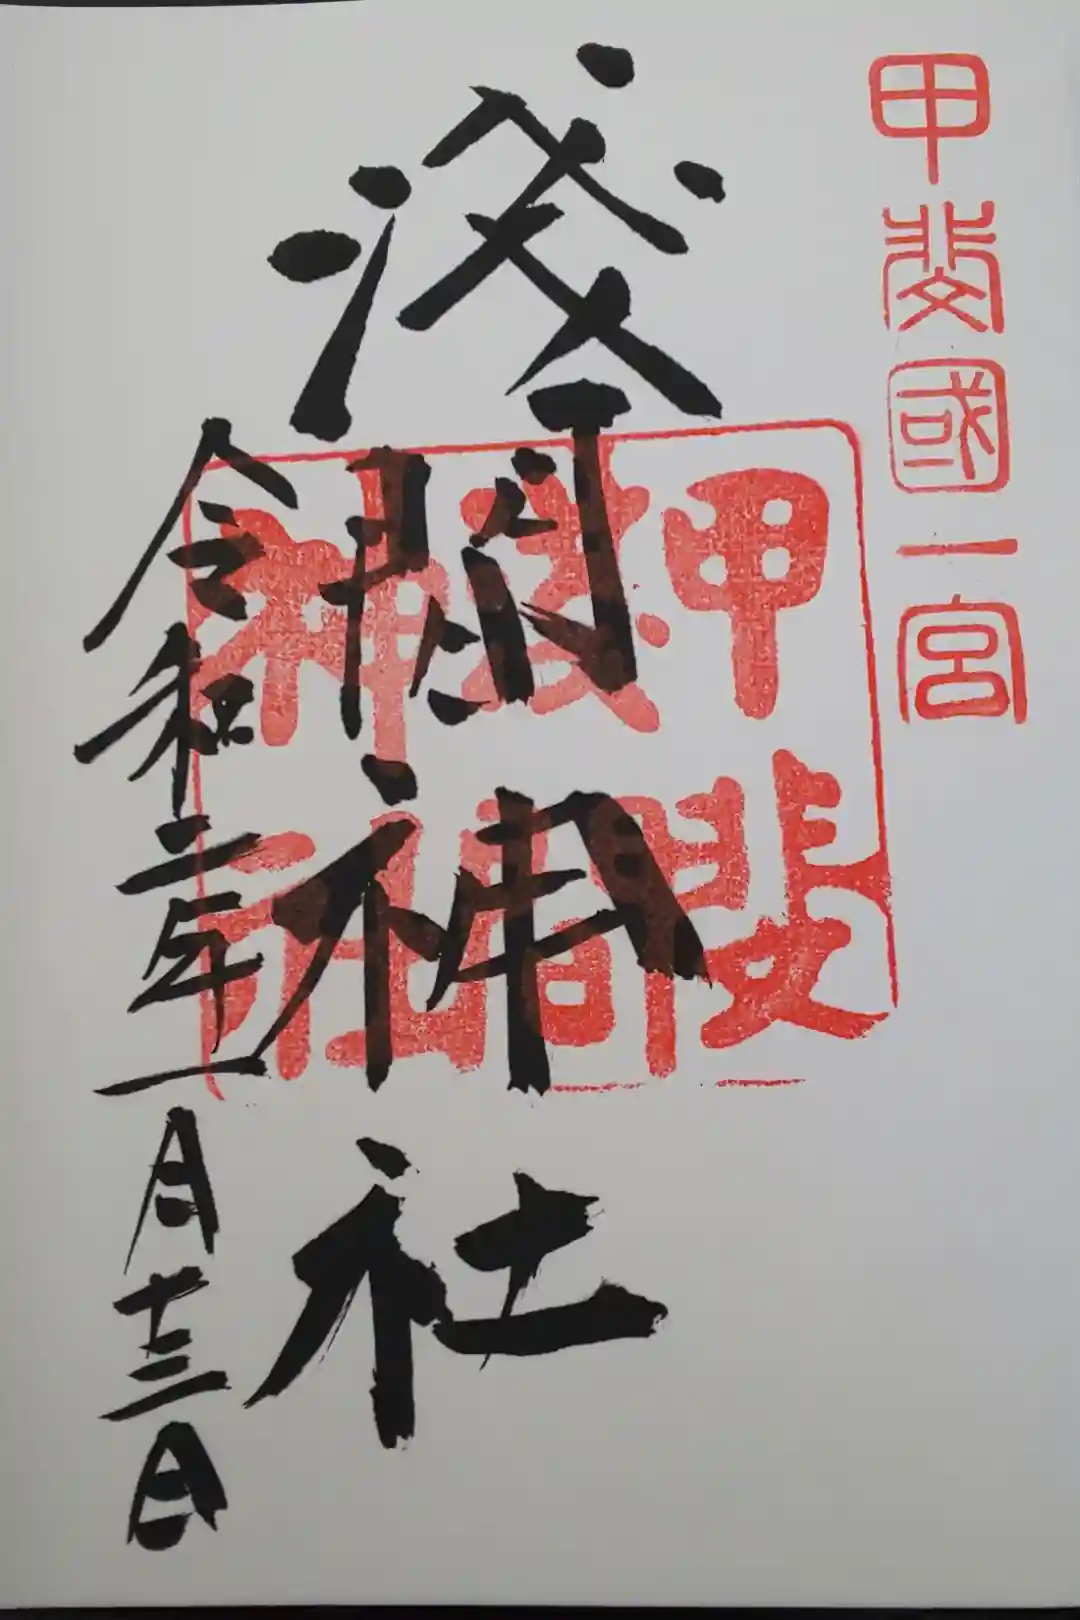 甲斐國一宮
淺間神社
甲斐
淺間
神社
令和二年一月十三日